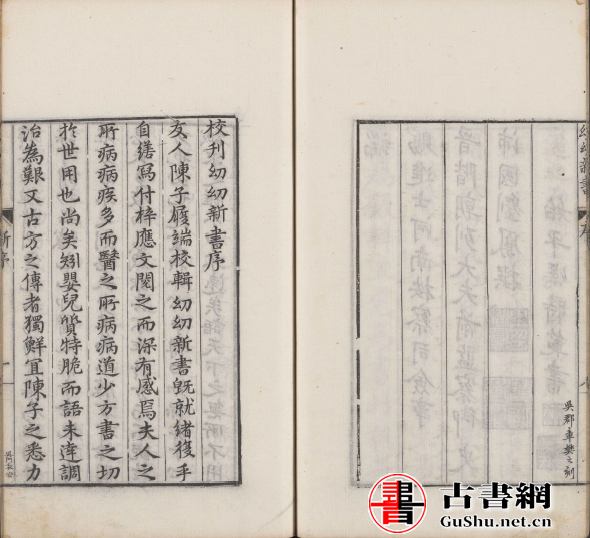 校刊幼幼新書序
友人陳子履端校輯幼幼新書既就緒復手
自繕寫付梓應文閱之而深有感焉夫人之
所病病疾多而醫之所病病道少方書之切
於世用也尚矣矧嬰兒質特脆而語未達調
治為艱又古方之傳者獨鮮宜陳子之悉力
新序
一
幼幼新書
序
吳郡車樊之刻
書
古書網
GuShu.net.cn